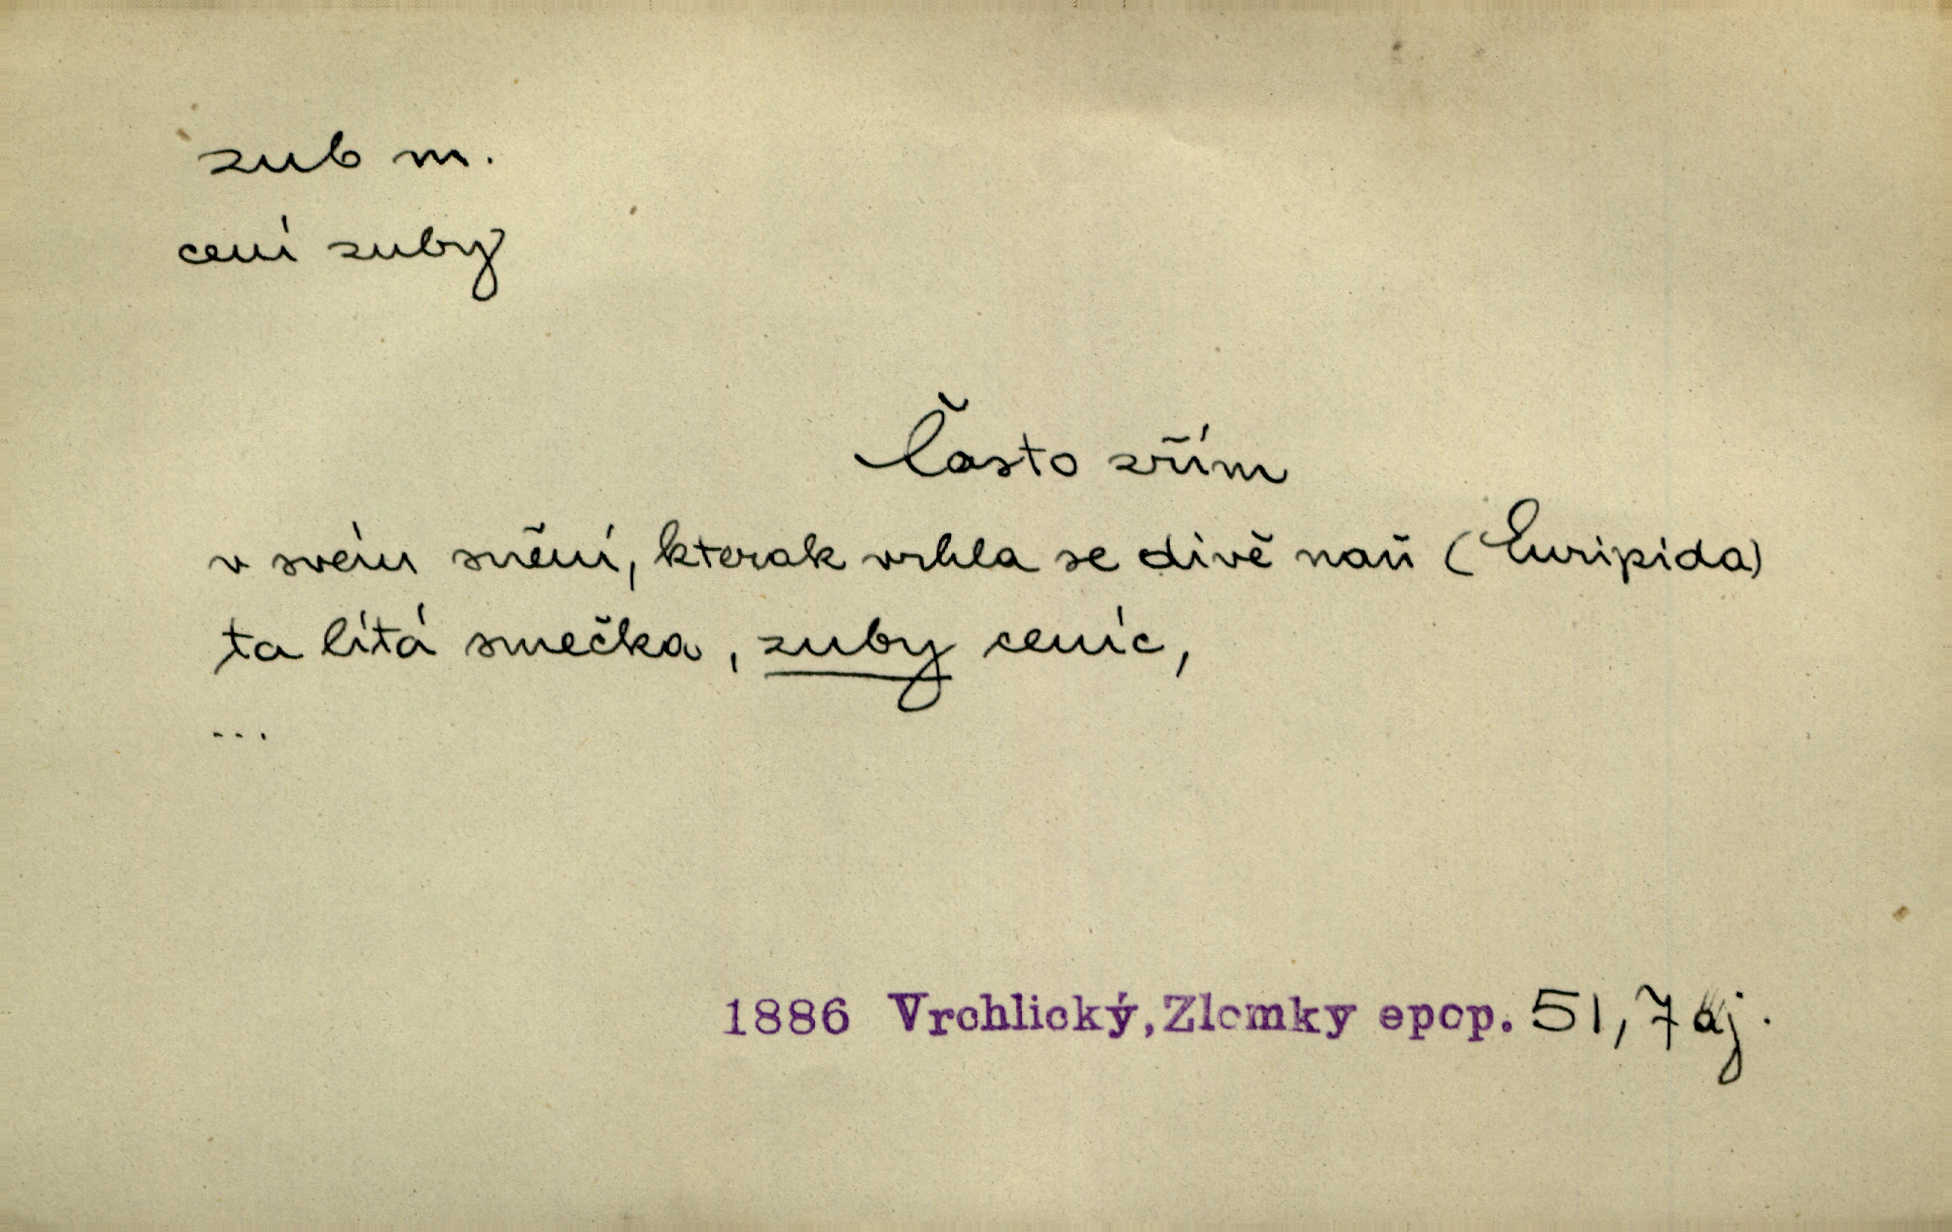 zub m.
cení zuby
Často zřím
v svém snění, kterak vrhla se divě naň (Euripida)
ta lítá smečka, zuby ceníc,
...
1886 Vrchlický, Zlomky epop. 51, 7 aj.